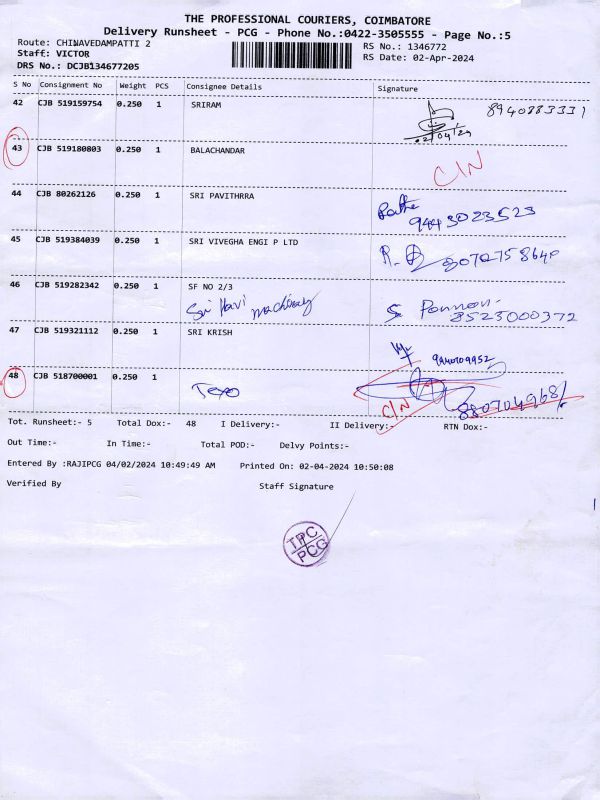 THE PROFESSIONAL COURIERS, COIMBATORE
Delivery Runsheet - PCG - Phone No.:0422-3505555 - Page No.:5
Route: CHINAVEDAMPATTI 2 RS No.: 1346772
Staff: VICTOR RS Date: 02-Apr-2024
DRS No.: DCJB134677205
S No Consignment No Weight PCS Consignee Details Signature
42 CJB 519159754 0.250 1 SRIRAM 8940883331
02/04/24
43 CJB 519180803 0.250 1 BALACHANDAR C/N
44 CJB 80262126 0.250 1 SRI PAVITHRRA
9443023523
45 CJB 519384039 0.250 1 SRI VIVEGHA ENGI P LTD
46 CJB 519282342 0.250 1 SF NO 2/3
Sri Hari machinery
8523000372
47 CJB 519321112 0.250 1 SRI KRISH
9940109952
48 CJB 518700001 0.250 1
C/N
Tot. Runsheet:- 5 Total Dox:- 48 I Delivery:- II Delivery:- RTN Dox:-
Out Time:- In Time:- Total POD:- Delvy Points:-
Entered By :RAJIPCG 04/02/2024 10:49:49 AM Printed On: 02-04-2024 10:50:08
Verified By Staff Signature
TPC
PCG